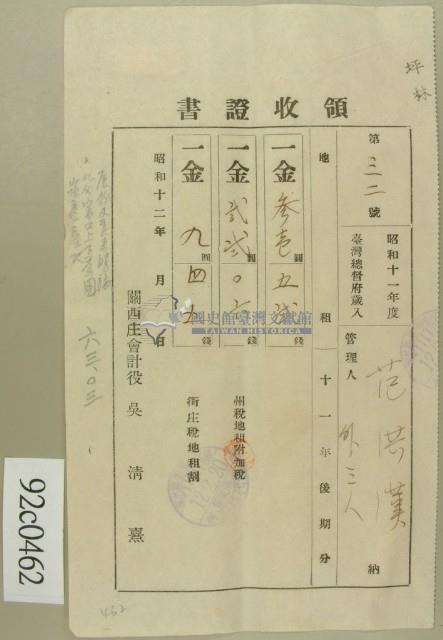 坪林
領收證書
第三二號
昭和十一年度
臺灣總督府歲入
管理人 范洪漢
外三人
納
地租(十一年後期分)
一金 參壱圓五弐錢
一金 弐弐圓〇六錢
州稅地租附加稅
一金 九圓四五錢
街庄稅地租割
昭和十二年 月 日
關西庄會計役 吳清熹
六三、〇三
國史館臺灣文獻館
TAIWAN HISTORICA
92c0462
462